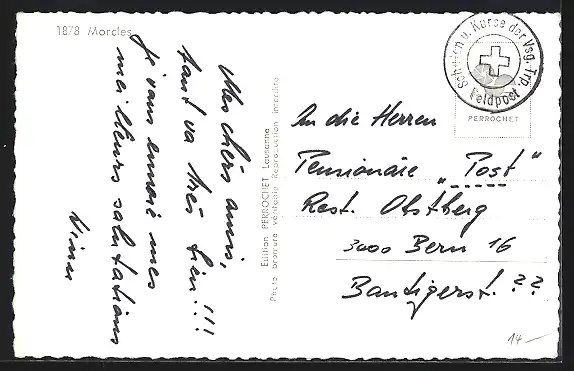 1878 Morcles
Mes chers amis,
tout va très bien!!!
Je vous envoie mes
meilleurs salutations
Edition PERROCHET Lausanne
Photo bromure véritable Reproduction interdite
Schulen u. Kurse der Vsg. Trp.
Feldpost
PERROCHET
An die Herren
Pensionäre "Post"
Rest. Obstberg
3000 Bern 16
Bantigerst. ??
14.-